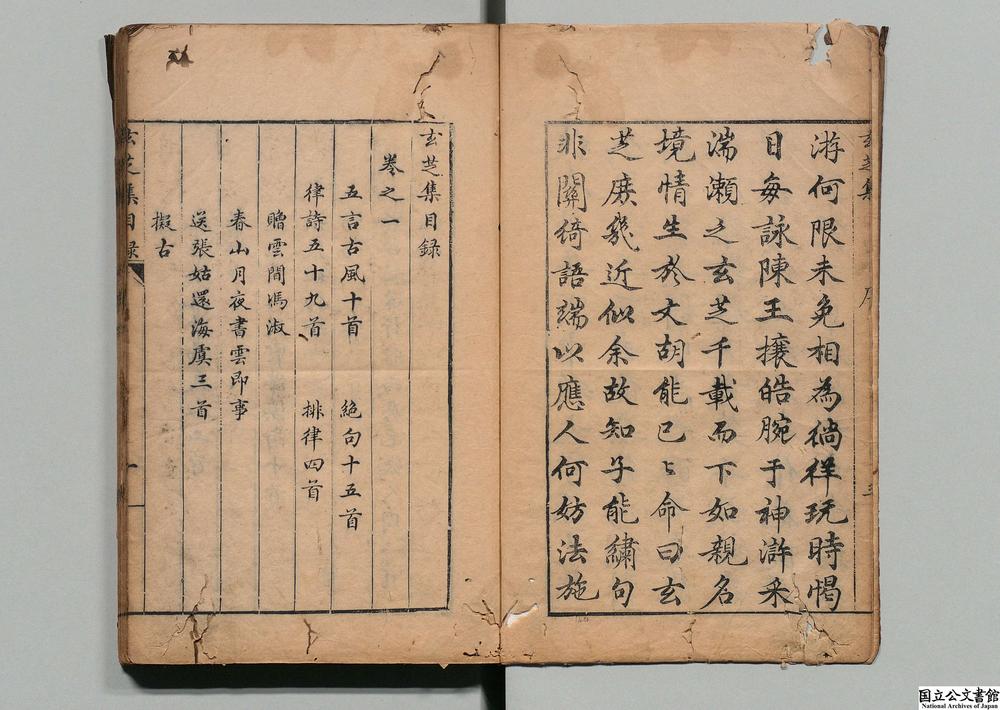 游何限未免相為徜徉玩時愒
日每詠陳王攘皓腕于神滸采
湍瀨之玄芝千載而下如親名
境情生於文胡能已已命曰玄
芝庶幾近似余故知子能繡句
非關綺語端以應人何妨法施
玄芝集
序
玄芝集目録
卷之一
五言古風十首 絶句十五首
律詩五十九首 排律四首
贈雲間馮淑
春山月夜書雲即事
送張姑還海虞三首
擬古
玄芝集目録
一
国立公文書館
National Archives of Japan